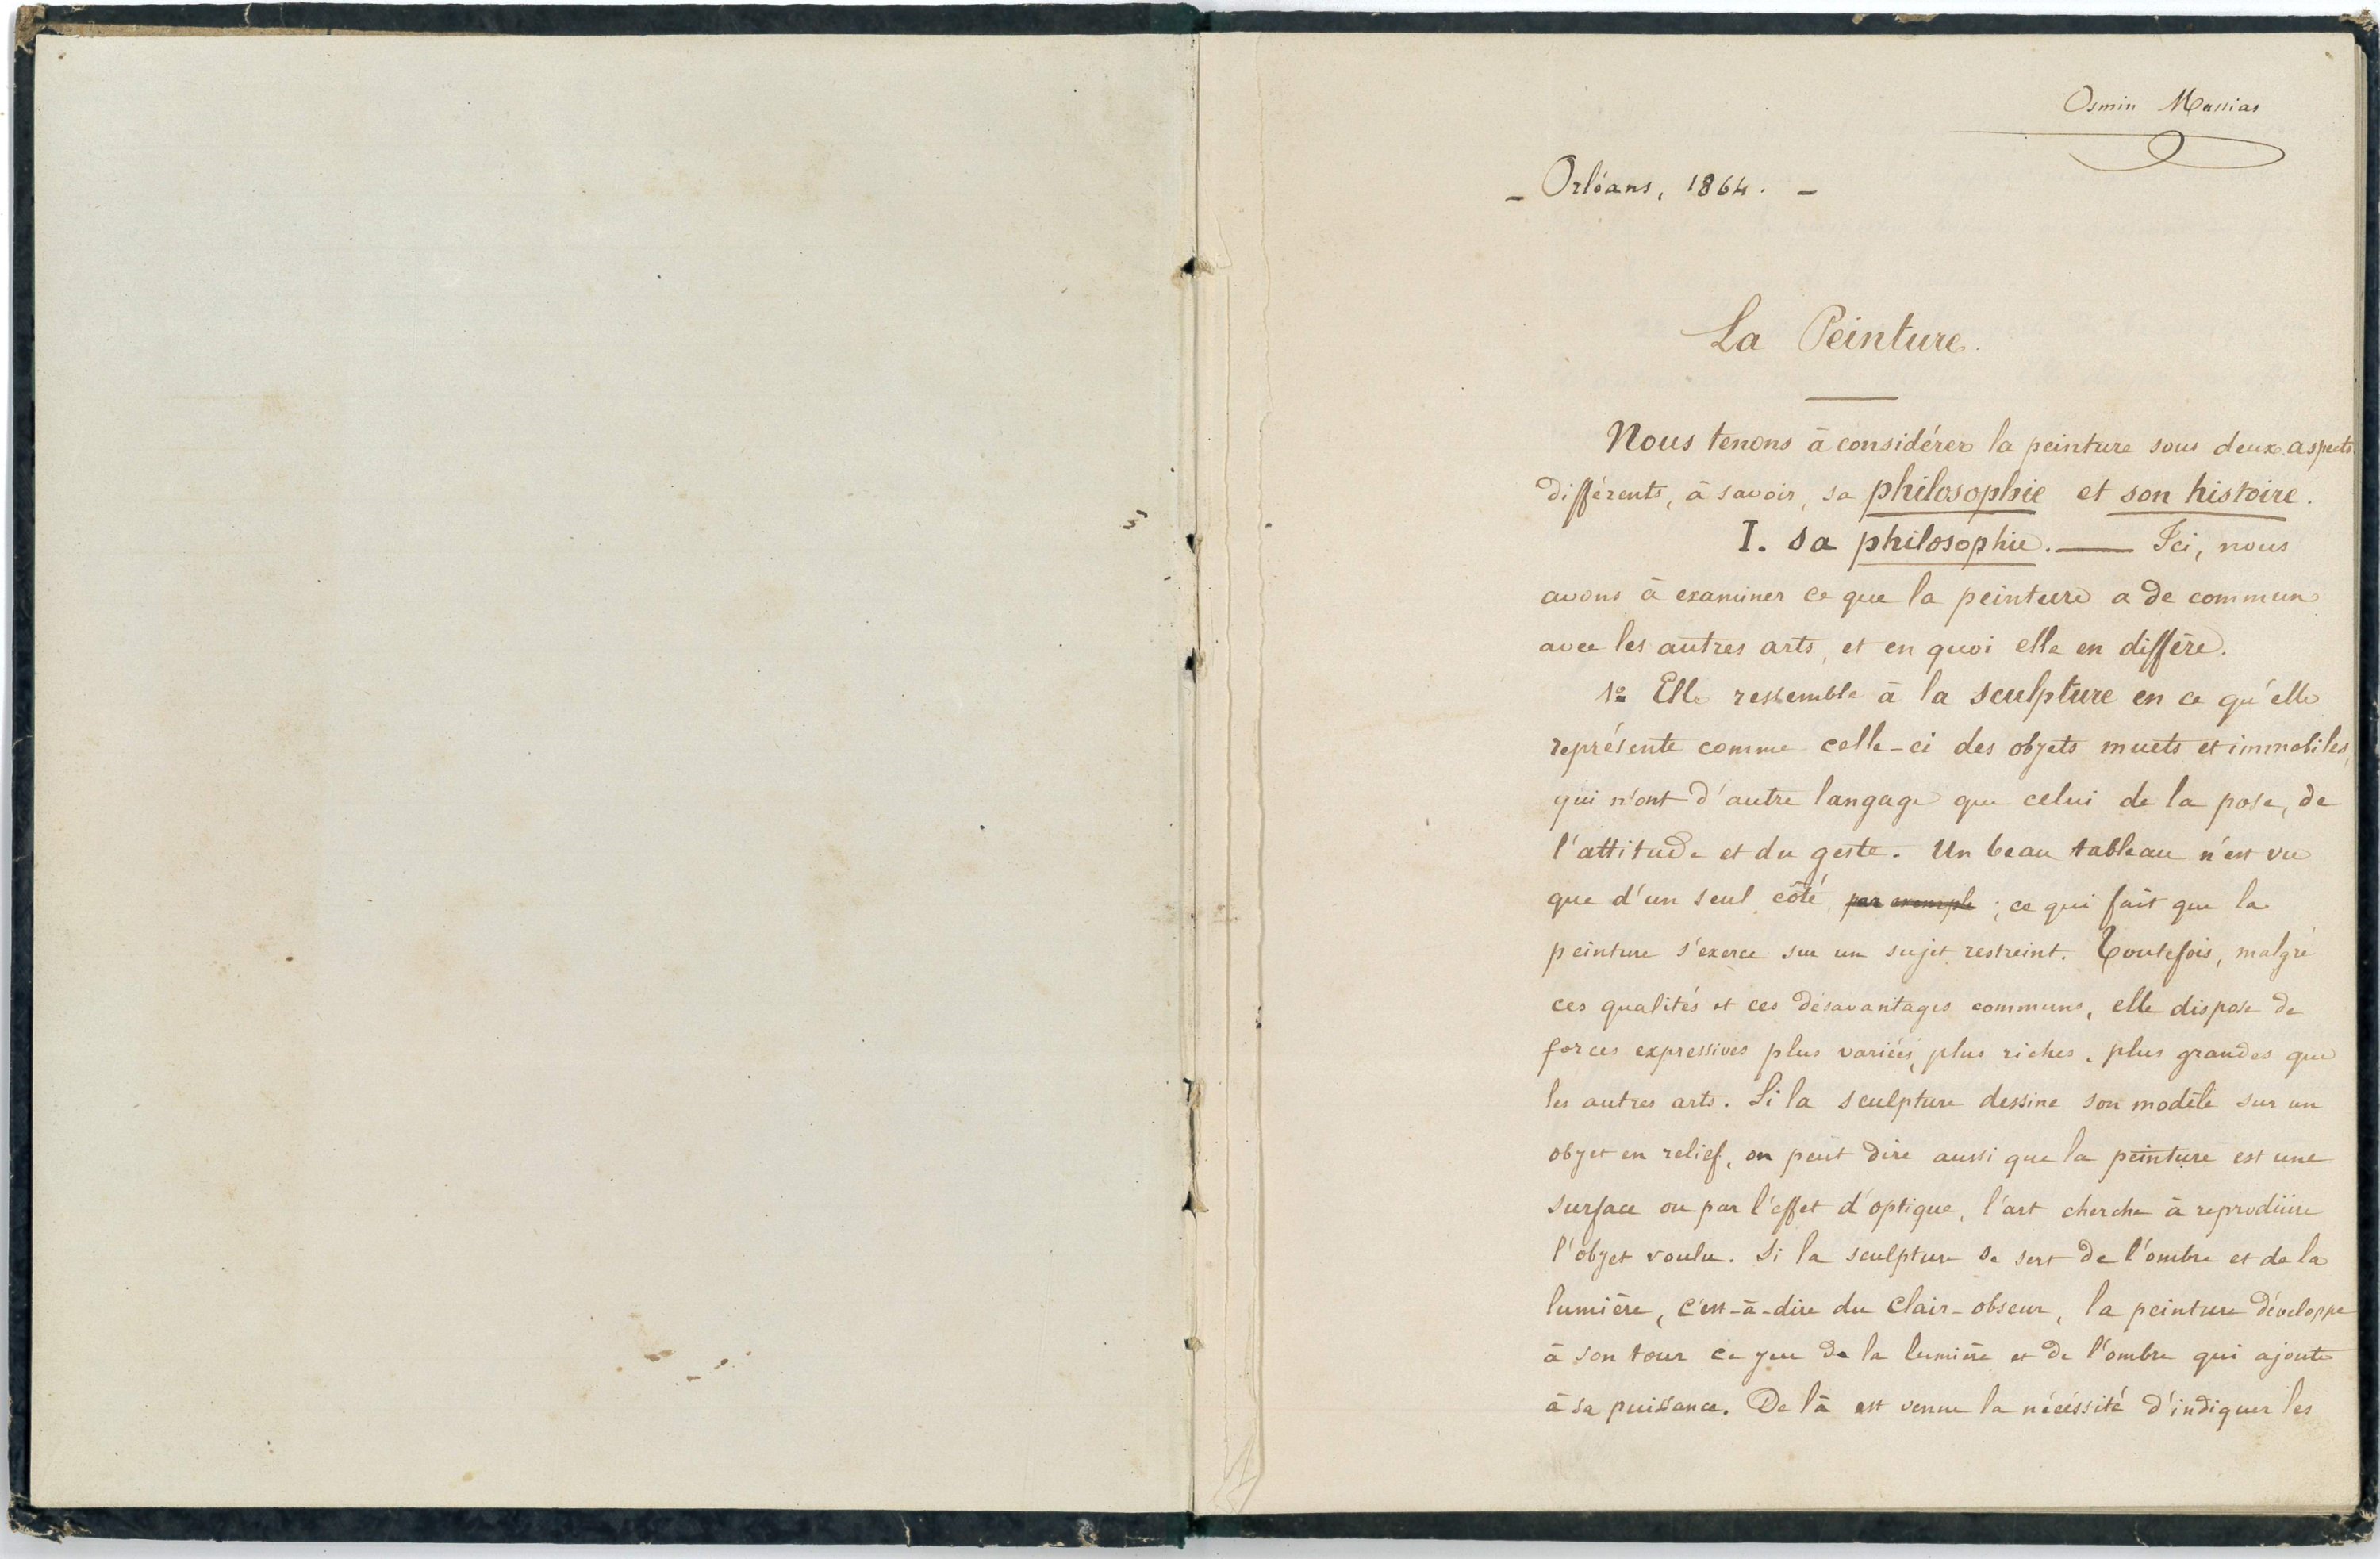 Osmin Massias
- Orléans, 1864. -
La Peinture.
Nous tenons à considérer la peinture sous deux aspects
différents, à savoir, sa philosophie et son histoire.
I. Sa philosophie. — Ici, nous
avons à examiner ce que la peinture a de commun
avec les autres arts, et en quoi elle en diffère.
1º Elle ressemble à la sculpture en ce qu'elle
représente comme celle-ci des objets muets et immobiles,
qui n'ont d'autre langage que celui de la pose, de
l'attitude et du geste. Un beau tableau n'est vu
que d'un seul côté, par exemple ; ce qui fait que la
peinture s'exerce sur un sujet restreint. Toutefois, malgré
ces qualités et ces désavantages communs, elle dispose de
forces expressives plus variées, plus riches, plus grandes que
les autres arts. Si la sculpture dessine son modèle sur un
objet en relief, on peut dire aussi que la peinture est une
surface ou par l'effet d'optique, l'art cherche à reproduire
l'objet voulu. Si la sculpture se sert de l'ombre et de la
lumière, c'est-à-dire du clair-obscur, la peinture développe
à son tour ce jeu de la lumière et de l'ombre qui ajoute
à sa puissance. De là est venue la nécéssité d'indiquer les